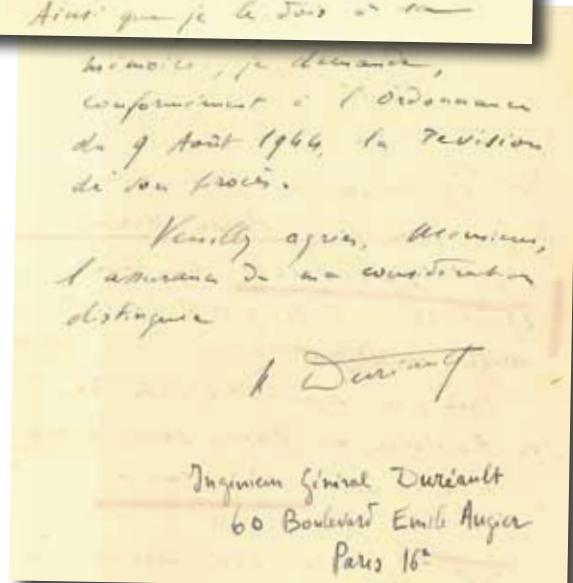 Ainsi que je le dois à sa
mémoire, je demande,
conformément à l'ordonnance
du 9 Août 1944, la Revision
de son procès.
Veuillez agréer, Monsieur,
l'assurance de ma considération
distinguée
Duréault
Ingénieur Général Duréault
60 Boulevard Emile Augier
Paris 16e